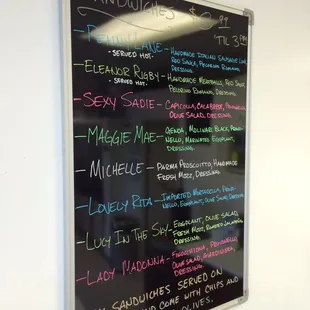 SANDWICHES $
'TIL 3PM
PENNY LANE - HANDMADE ITALIAN SAUSAGE LINK,
- SERVED HOT - RED SAUCE, PECORINO ROMANO,
DRESSING
ELEANOR RIGBY - HANDMADE MEATBALLS, RED SAUCE
- SERVED HOT - PECORINO ROMANO, DRESSING.
SEXY SADIE - CAPICOLLA, CALABRESE,
OLIVE SALAD, DRESSING
MAGGIE MAE - GENOA, MOLINARI BLACK,
NELLO, MARINATED EGGPLANT,
DRESSING
MICHELLE - PARMA PROSCIUTTO, HANDMADE
FRESH MOZZ, DRESSING.
LOVELY RITA - IMPORTED MORTADELLA,
NELLO, EGGPLANT, OLIVE SALAD, DRESSING
LUCY IN THE SKY - EGGPLANT, OLIVE SALAD,
FRESH MOZZ, ROASTED
DRESSING.
LADY MADONNA - FINOCCHIONA,
OLIVE SALAD,
DRESSING.
SANDWICHES SERVED ON
AND COME WITH CHIPS AND
OLIVES.